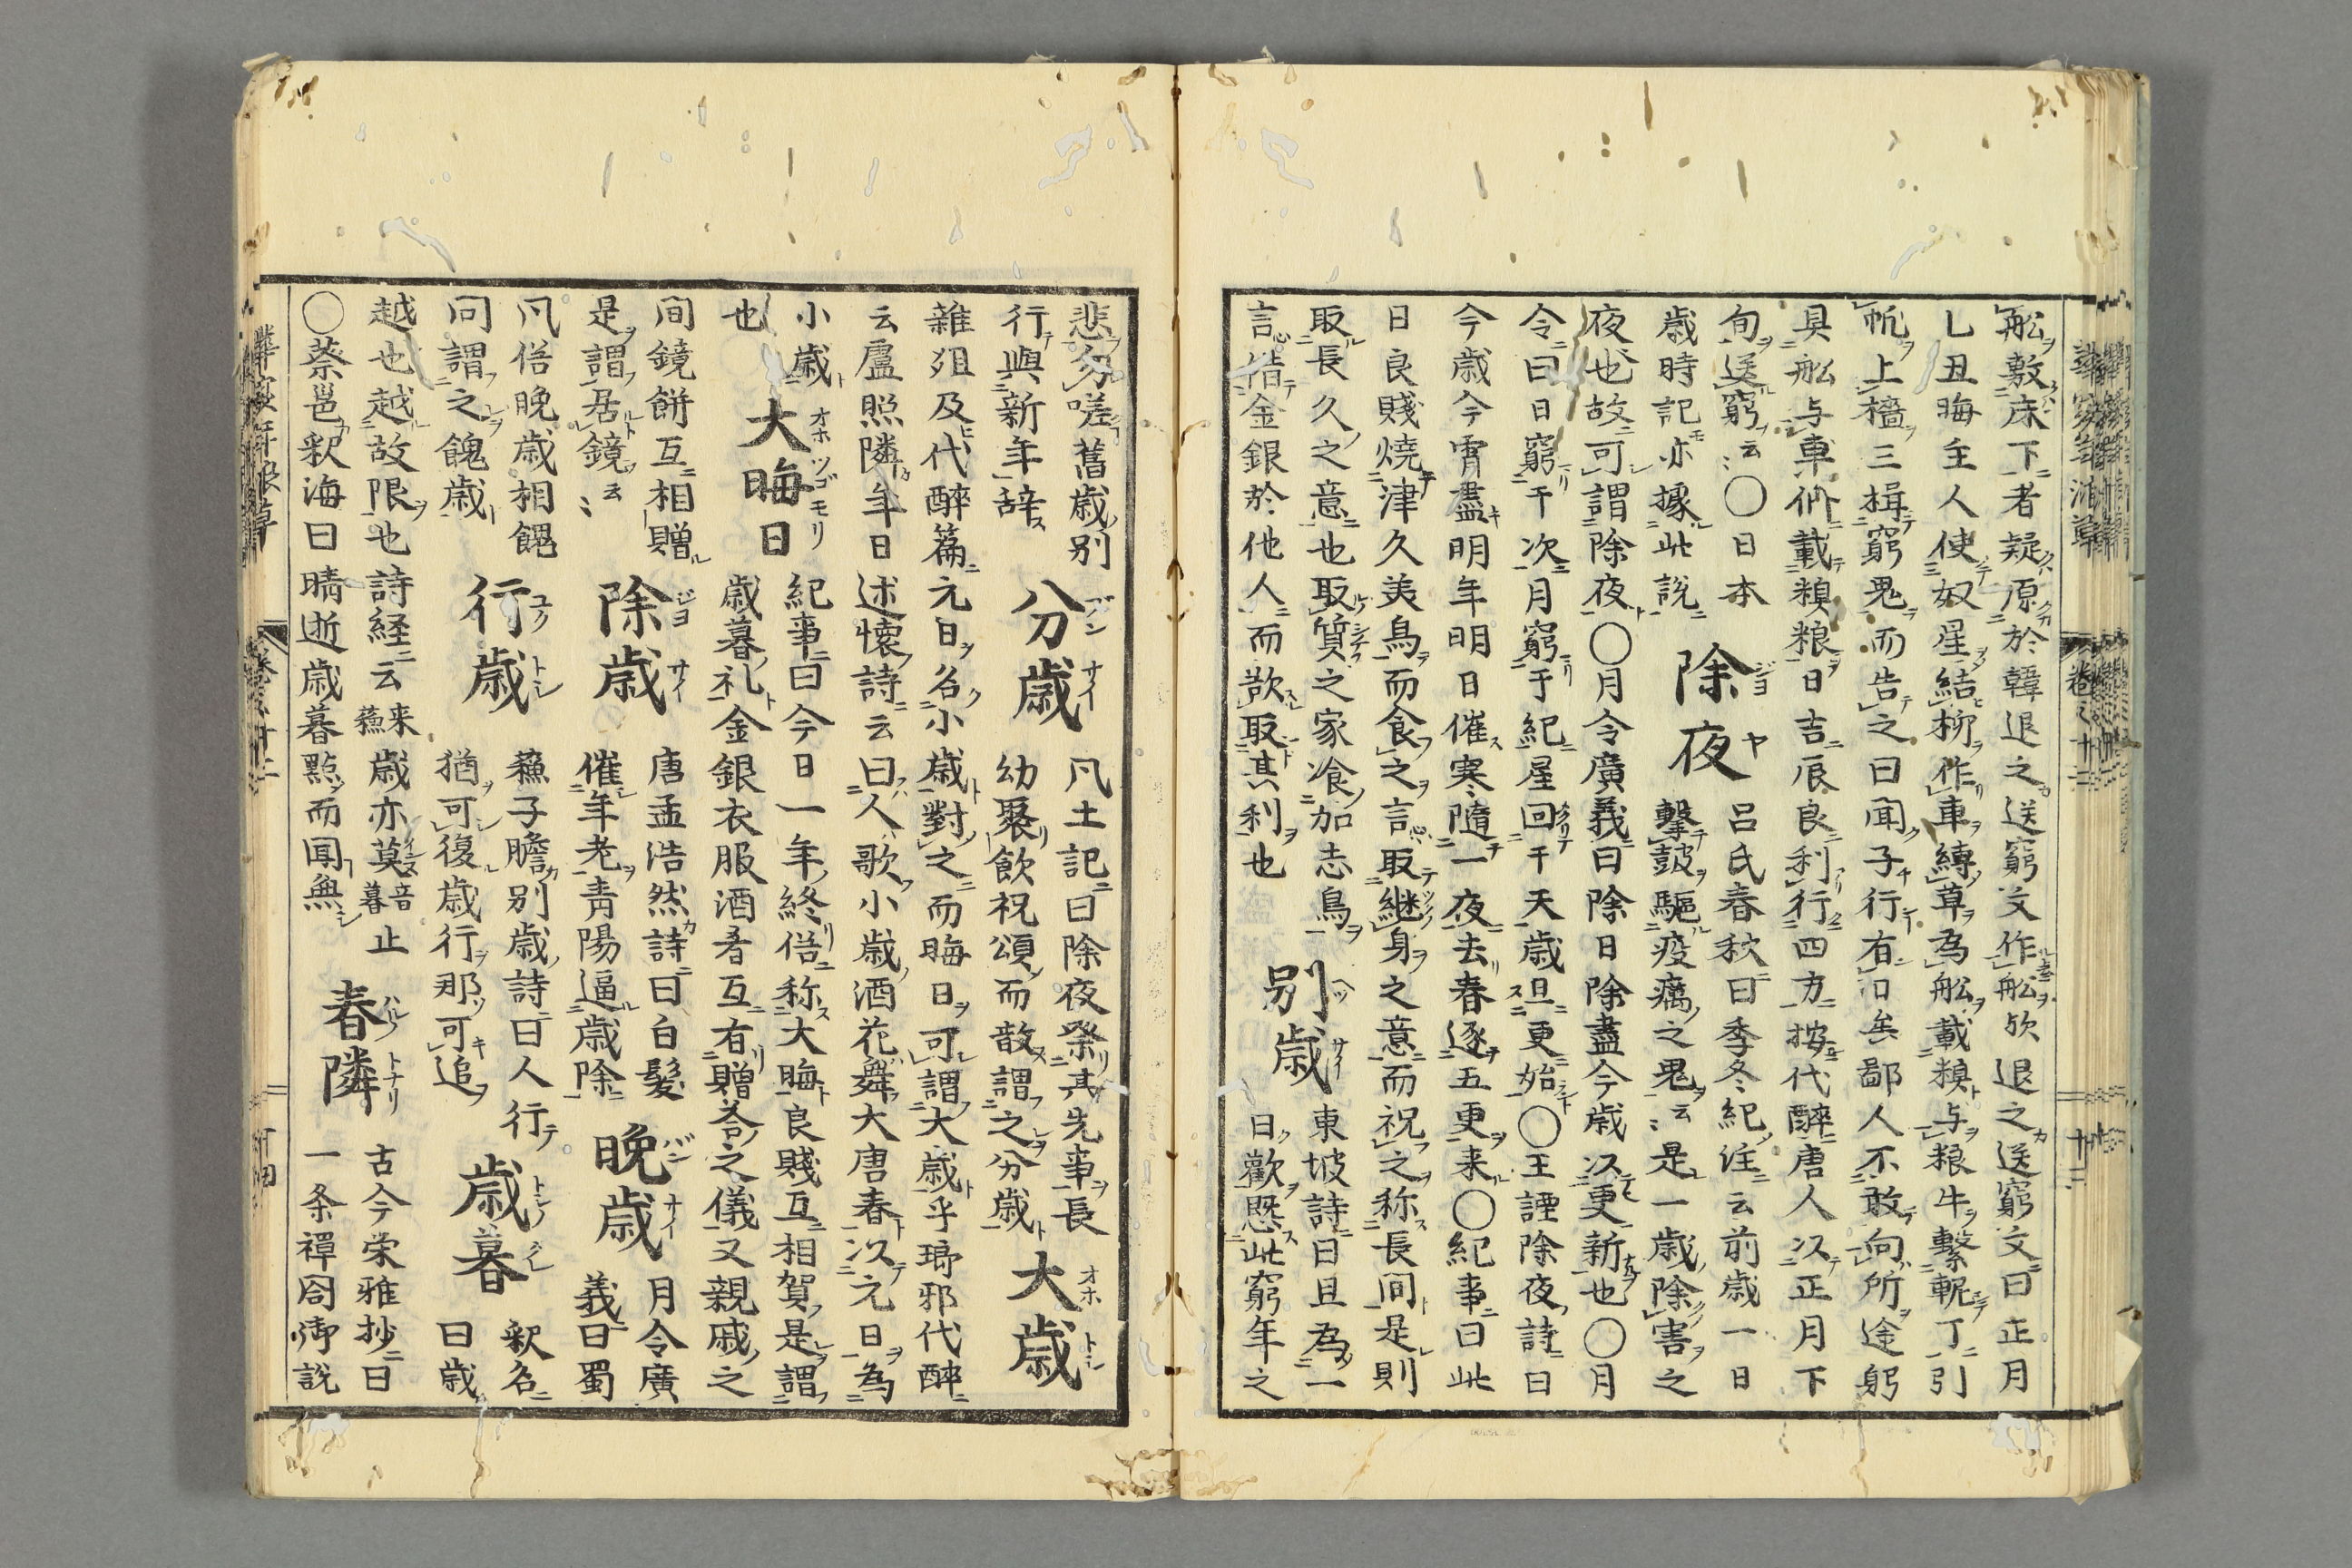 舩敷床下者疑原於韓退之送窮文作舩欤退之送窮文曰正月
乚丑晦主人使奴星結柳作車縛草為舩載糗与粮牛繫軛丁引
帆上檣三揖窮鬼而告之曰聞子行有日矣鄙人不敢向所途躬
具舩与車俻載糗粮日吉辰良利行四方按代醉唐人以正月下
旬送窮云〻〇日本
歳時記亦據此說
除夜
呂氏春秋曰季冬紀注云前歳一日
擊鼓驅疫癘之鬼云〻是一歳除害之
夜也故可謂除夜〇月令廣義曰除日除盡今歳以更新也〇月
令曰日窮于次月窮于紀星回于天歳旦更始〇王諲除夜詩曰
今歳今宵盡明年明日催寒隨一夜去春逐五更来〇紀事曰此
日良賤燒津久美鳥而食之言取継身之意而祝之称長間是則
取長久之意也取質之家飡加志鳥
言借金銀於他人而欲取其利也
別歳
東坡詩曰且為一
日歡慰此窮年之
悲勿嗟舊歳別
行與新年辞
分歳
凡土記曰除夜祭其先事長
幼聚飲祝頌而散謂之分歳
大歳
雜爼及代醉篇元日名小歳對之而晦日可謂大歳乎瑯邪代醉
云盧照隣年日述懐詩云曰人歌小歳酒花舞大唐春以元日為
小歳
也
大晦日
紀事曰今日一年終俗称大晦良賤互相賀是謂
歳暮礼金銀衣服酒肴互有贈荅之儀又親戚之
間鏡餅互相贈
是謂居鏡云〻
除歳
唐孟浩然詩曰白髮
催年老青陽逼歳除
晩歳
月令廣
義曰蜀
凡俗晩歳相餽
問謂之餽歳
行歳
蘓子瞻別歳詩曰人行
猶可復歳行那可追
歳暮
釈名
曰歳
越也越故限也詩経云来蘓歳亦莫音暮止
〇蔡邕釈海曰晴逝歳暮㸃而聞無
春隣
古今栄雅抄曰
一条禪閤御說